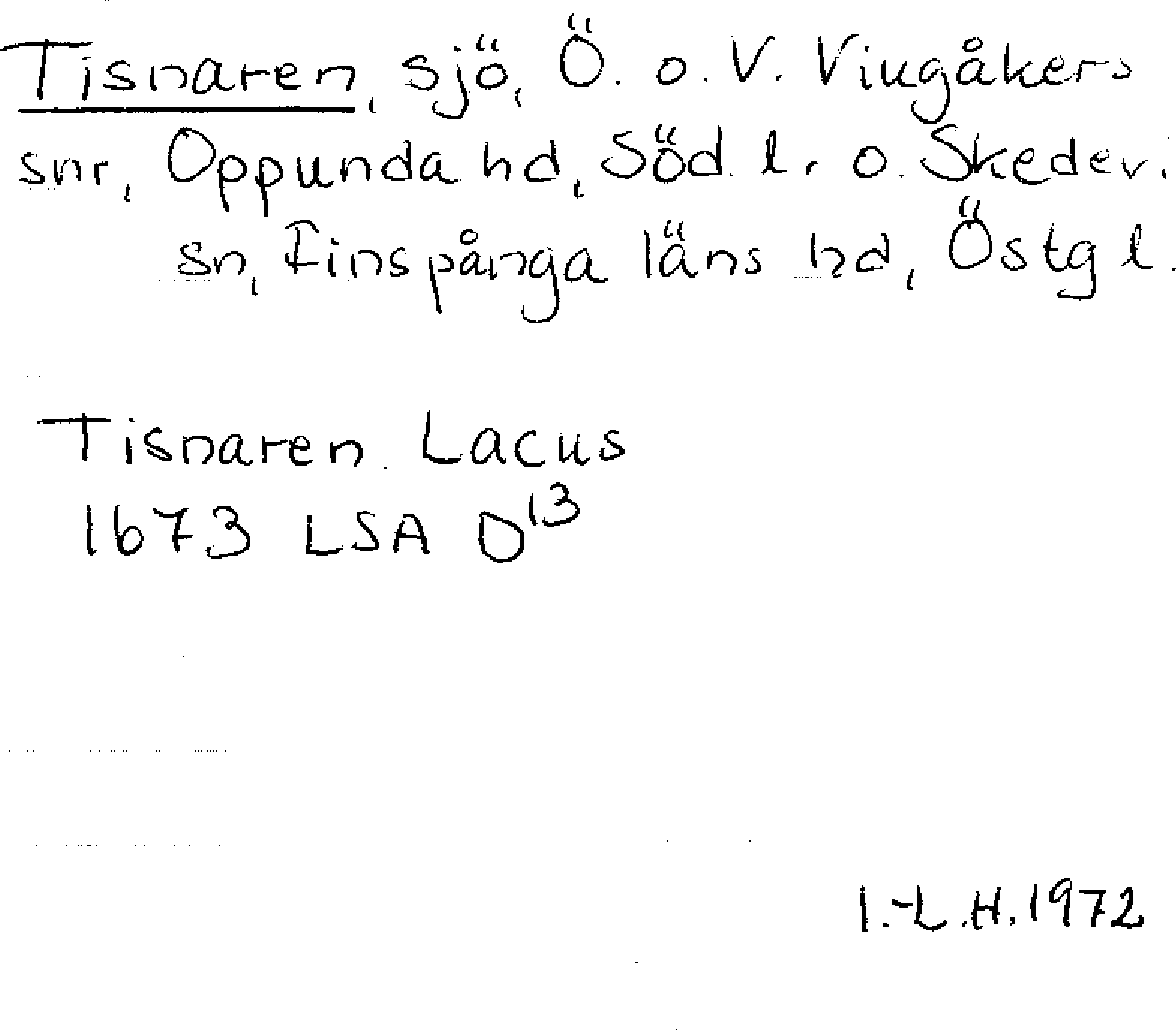 Tisnaren, sjö, Ö. o. V. Vingåkers
snr, Oppunda hd, Söd. l. o. Skedevi
sn, Finspånga läns hd, Östg l.
Tisnaren Lacus
1673 LSA D¹³
I.-L.H. 1972